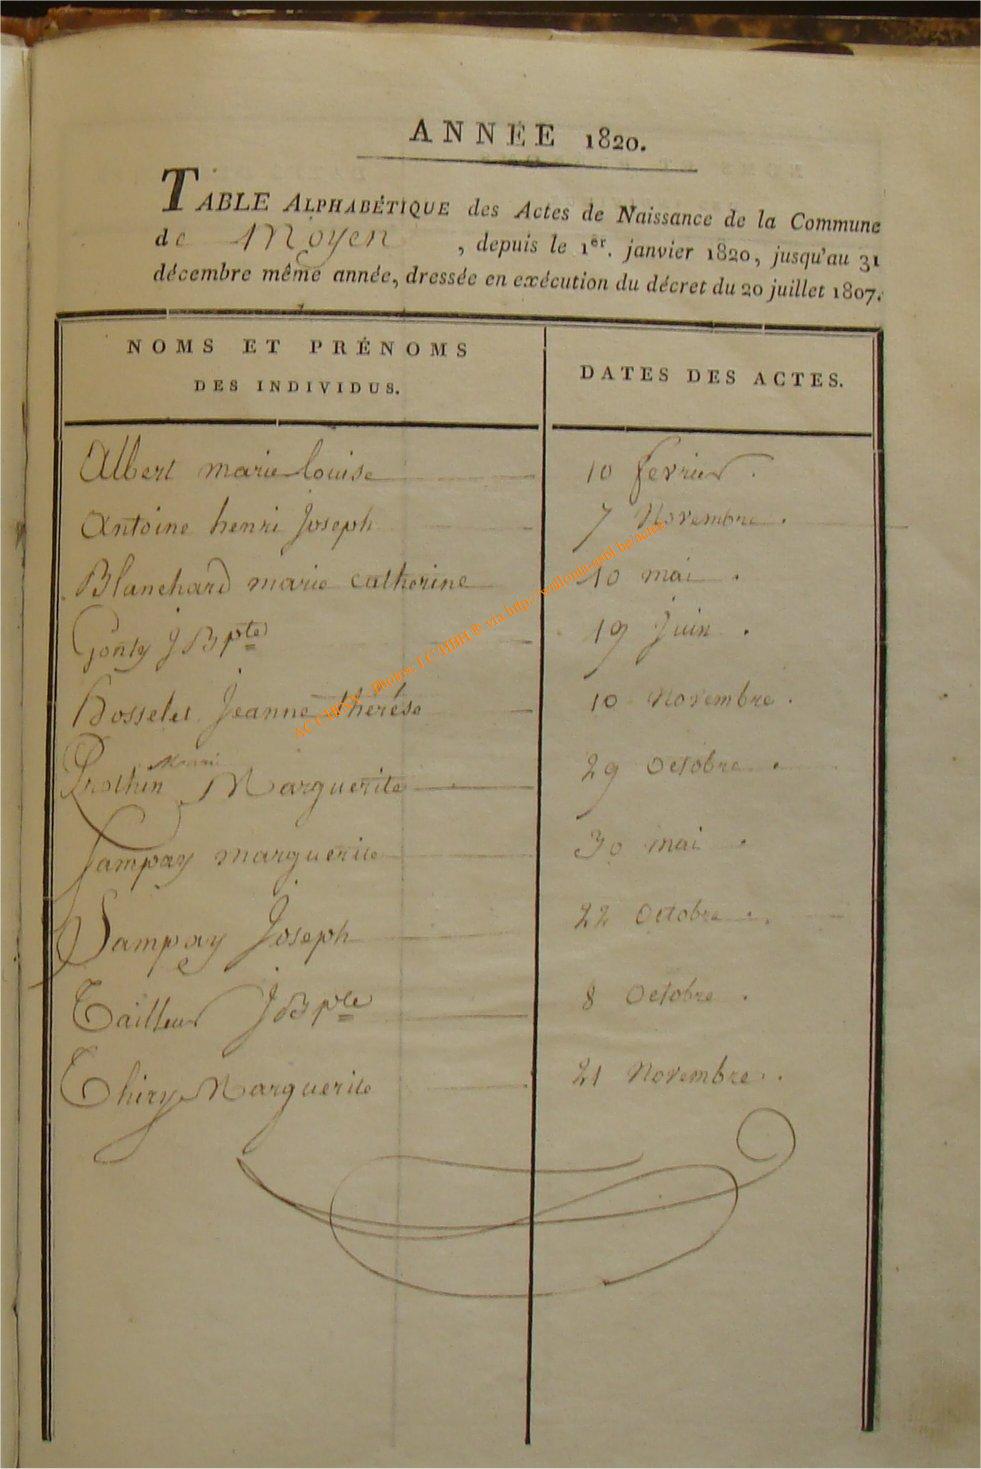 ANNÉE 1820.
TABLE ALPHABÉTIQUE des Actes de Naissance de la Commune
de Moyen , depuis le 1er. janvier 1820, jusqu'au 31
décembre même année, dressée en exécution du décret du 20 juillet 1807.
NOMS ET PRÉNOMS DES INDIVIDUS. DATES DES ACTES.
Albert marie Louise 10 fevrier.
Antoine henri Joseph 7 Novembre.
Blanchard marie catherine 10 mai.
Gonty J B pte 19 Juin.
Hosselet Jeanne thérèse 10 Novembre.
Marie
Prothin Marguerite 29 Octobre.
Sampay marguerite 30 mai.
Sampay Joseph 22 Octobre.
Tailleur J B pte 8 Octobre.
Thiry Marguerite 21 Novembre.